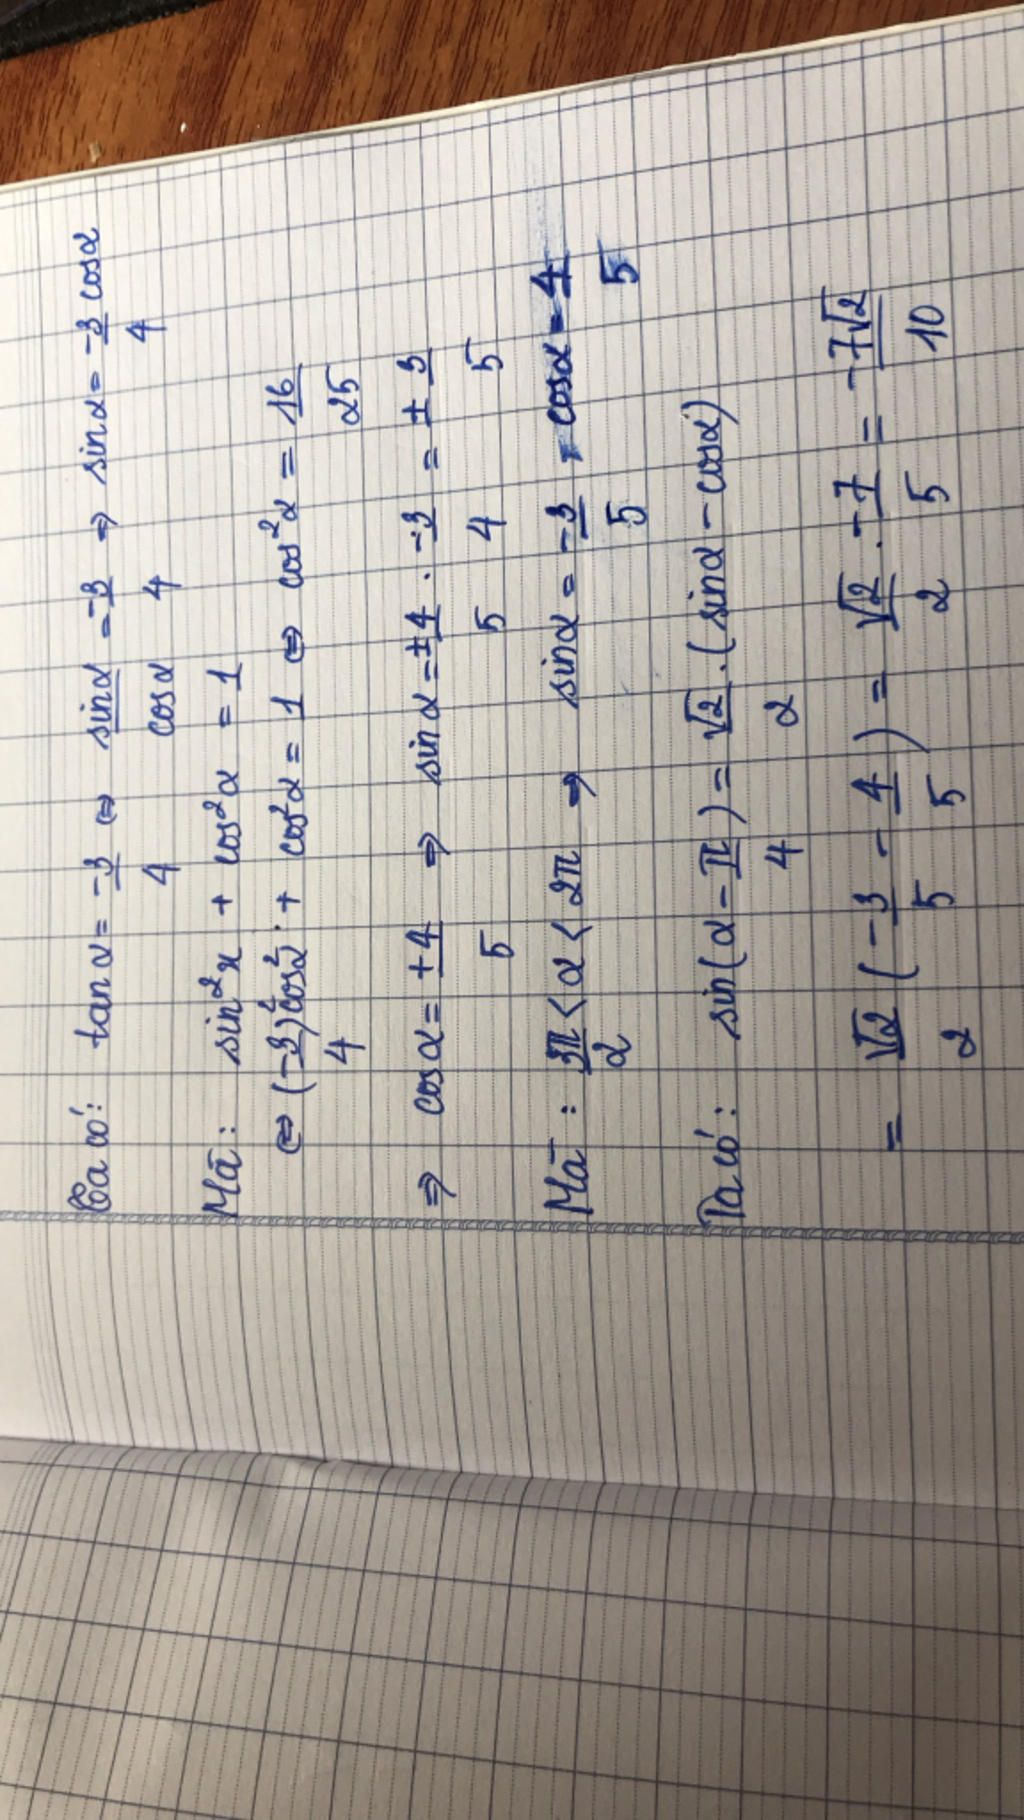 Ta có: tanα = -3/4 ⇔ sinα/cosα = -3/4 ⇒ sinα = -3/4 cosα
Mà: sin²x + cos²α = 1
⇔ (-3/4)² cos²α + cos²α = 1 ⇔ cos²α = 16/25
⇒ cosα = ±4/5 ⇒ sinα = ±4/5 . -3/4 = ±3/5
Mà: 3π/2 < α < 2π ⇒ sinα = -3/5, cosα = 4/5
Ta có: sin(α - π/4) = √2/2 . (sinα - cosα)
= √2/2 (-3/5 - 4/5) = √2/2 . -7/5 = -7√2/10